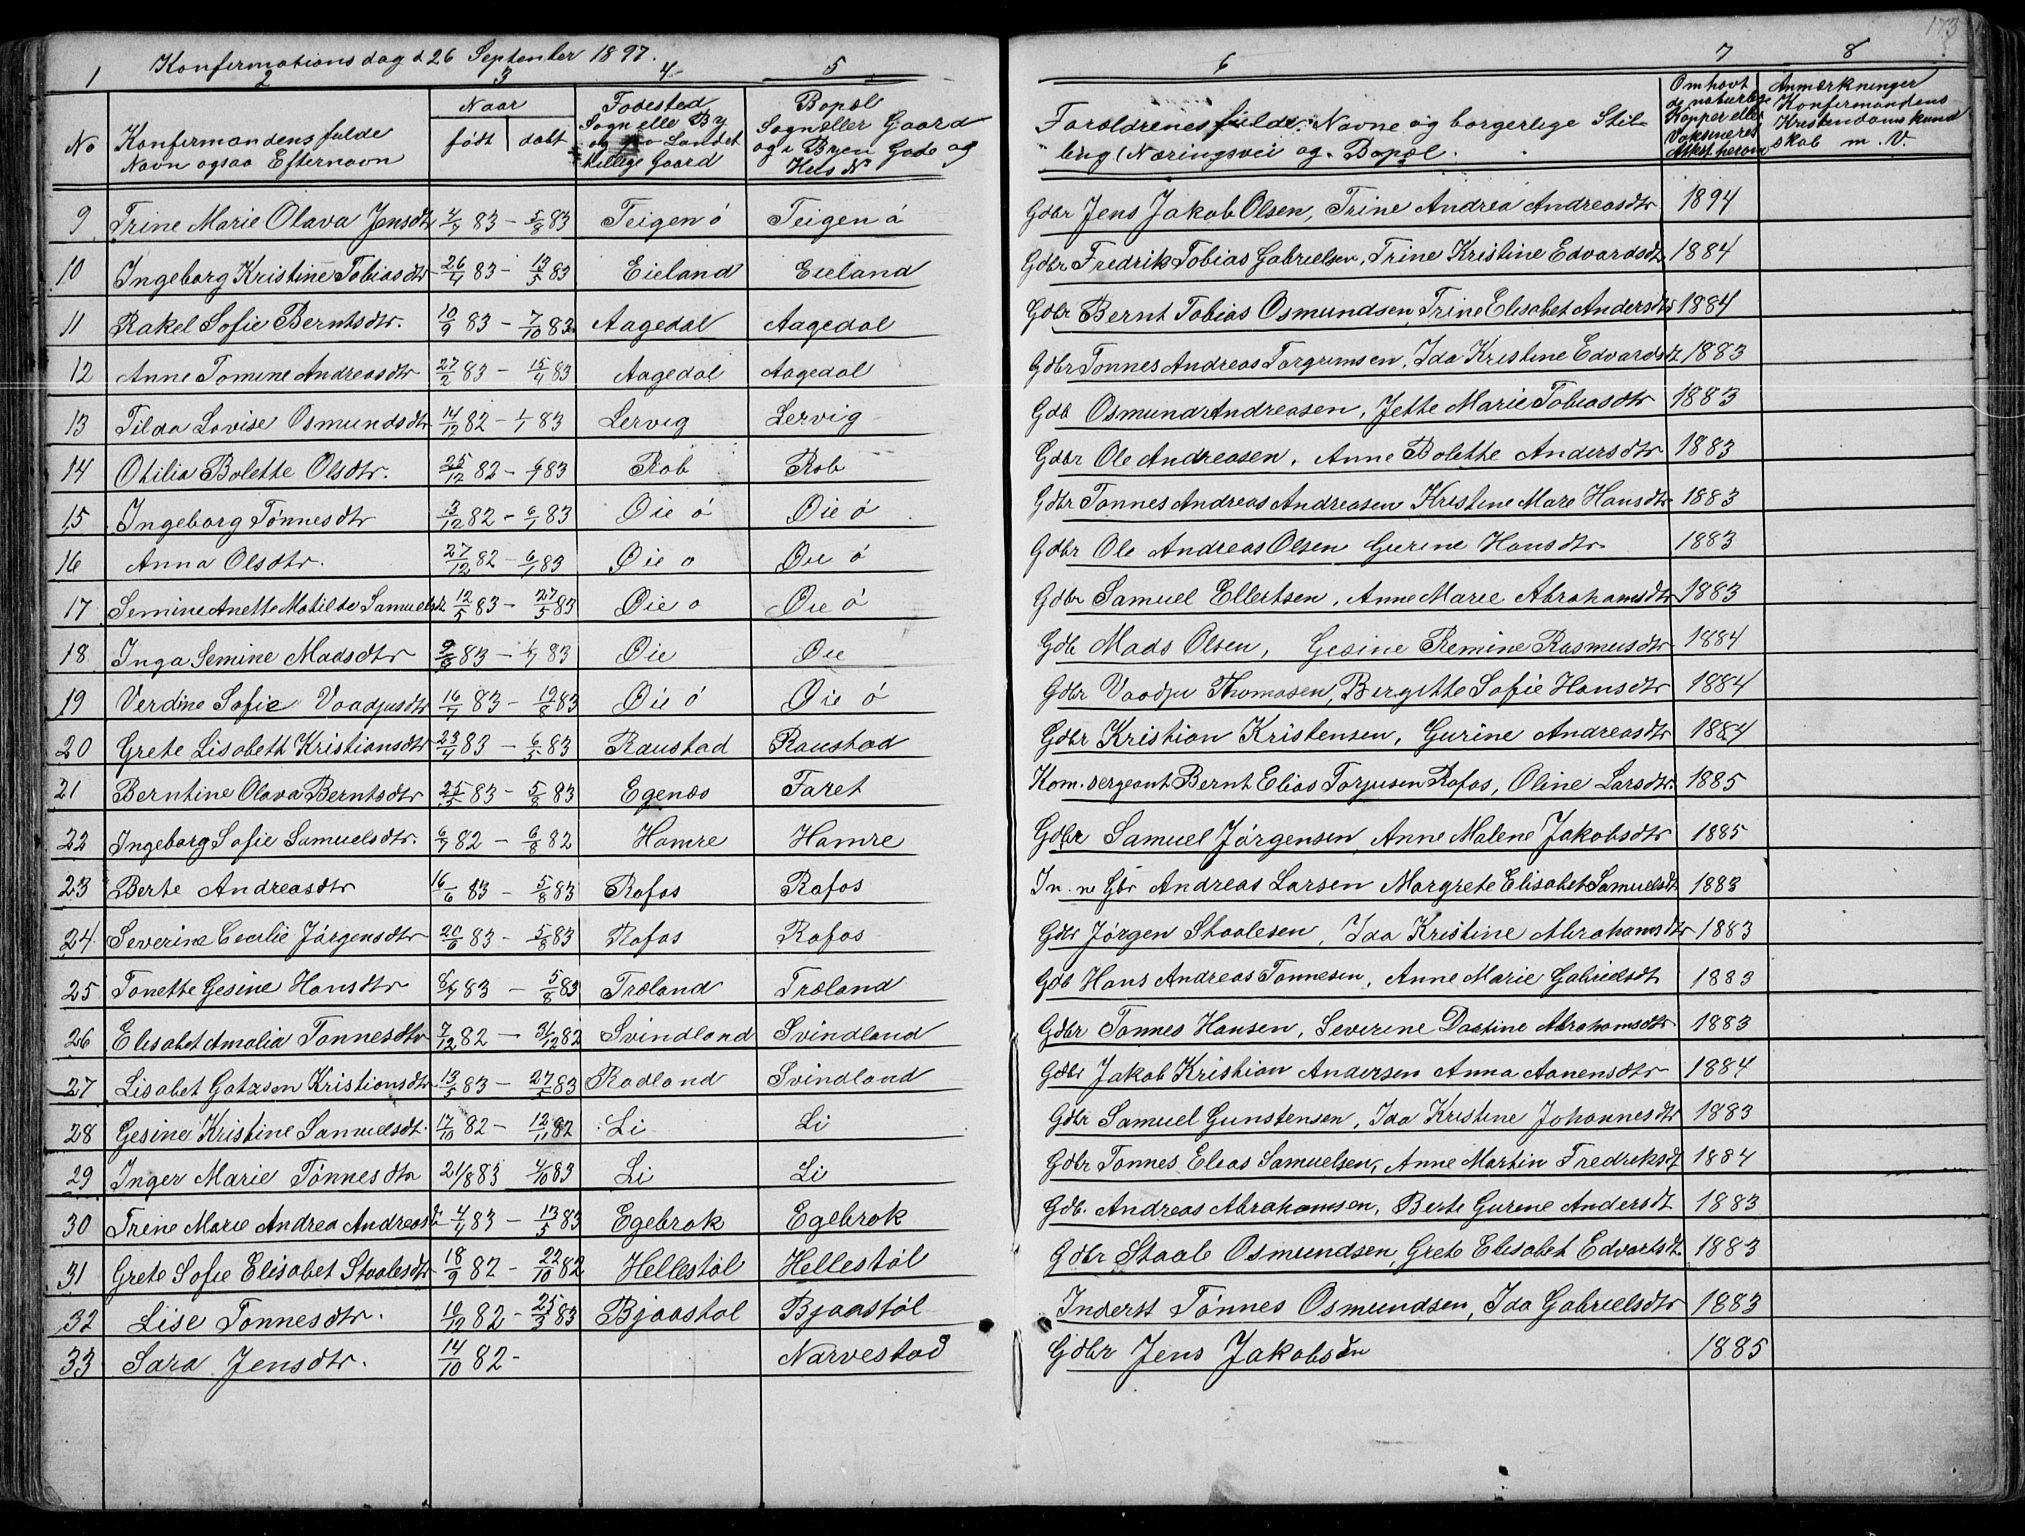 173
Konfirmationsdag d 26 September 1897.
1 2 3 4 5 6 7 8
No Konfirmandens fulde Navn ogsaa Efternavn
Naar født døbt
Fødested Sogn elle By og paa Landet tillige Gaard
Bopæl Sogn eller Gaard og i Byen Gade og Hus No
Foroldrenes fulde Navne og borgerlige Stilling (Næringsvei og Bopæl.
Omhavt de naturlige Kopper eller Vaksineret Attest herom
Anmærkninger Konfirmandens Kristendomskundskab m. V.
9 Trine Marie Olava Jensdtr 4/7 83 - 5/8 83 Teigen ö Teigen ö Gdbr Jens Jakob Olsen, Trine Andrea Andreasdtr 1894
10 Ingeborg Kristine Tobiasdtr 26/4 83 - 13/5 83 Eieland Eieland Gdbr Fredrik Tobias Gabrielsen, Trine Kristine Edvardsdt 1884
11 Rakel Sofie Berntsdtr. 10/9 83 - 7/10 83 Aagedal Aagedal Gdbr Bernt Tobias Osmundsen Trine Elisabet Andersdtr 1884
12 Anne Tomine Andreasdtr 27/2 83 - 15/4 83 Aagedal Aagedal Gdbr Tonnes Andreas Torgrimsen, Ida Kristine Edvardsdt 1883
13 Tilda Lovise Osmundsdtr 14/12 82 - 1/1 83 Lervig Lervig Gdb Osmund Andreasen, Jette Marie Tobiasdtr 1883
14 Otilia Bolette Olsdtr. 25/12 82 - 83 Rob Rob Gdbr Ole Andreasen, Anne Bolette Andersdtr 1883
15 Ingeborg Tønnesdtr 3/12 82 - 6/1 83 Øie ö Øie ö Gdbr Tonnes Andreas Andreasen Kristine Mare Hansdtr 1883
16 Anna Olsdtr. 27/12 82 - 6/1 83 Øie o Øie ö Gdbr Ole Andreas Olsen Gurine Hansdtr 1883
17 Semine Anette Matilde Samuelsdt 12/5 83 - 27/5 83 Øie o Øie ö Gdbr Samuel Ellertsen, Anne Marie Abrahamsdtr 1883
18 Inga Semine Madsdtr 83 - 83 Øie Øie Gdb Mads Olsen, Gesine Remine Rasmusdtr 1884
19 Verdine Sofie Vaadjusdtr 16/7 83 - 19/8 83 Øie ö Øie ö Gdbr Vaadju Thomasen, Bergitte Sofie Hansdtr 1884
20 Grete Lisabeth Kristiansdtr 23/4 83 - 6/5 83 Raustad Raustad Gdbr Kristian Kristensen, Gurine Andreasdtr 1884
21 Berntine Olava Berntsdtr 25/5 83 - 5/8 83 Egenæs Faret Kom. sergeant Bernt Elias Torjusen Rafos, Oline Larsdtr. 1885
22 Ingeborg Sofie Samuelsdtr. 6/7 82 - 6/8 82 Hamre Hamre Gdbr Samuel Jörgensen, Anne Malene Jakobsdtr 1885
23 Berte Andreasdtr 16/6 83 - 5/8 83 Rafos Rafos In. n Gbr Andreas Larsen Margrete Elisabet Samuelsdt 1883
24 Severine Cecilie Jörgensdtr 20/6 83 - 5/8 83 Rafos Rafos Gdbr Jörgen Staalesen, Ida Kristine Abrahamsdtr 1883
25 Tonette Gesine Hansdtr 6/7 83 - 5/8 83 Træland Træland Gdb Hans Andreas Tonnesen, Anne Marie Gabrielsdt 1883
26 Elisabet Amalia Tonnesdtr 7/12 82 - 31/12 82 Svindland Svindland Gdbr Tonnes Hansen, Severine Dortine Abrahamsdtr 1883
27 Lisabet Gotzson Kristiansdtr 13/5 83 - 27/5 83 Rodland Svindland Gdbr Jakob Kristian Andersen Anna Aanensdtr 1884
28 Gesine Kristine Samuelsdt. 17/10 82 - 12/11 82 Li Li Gdbr Samuel Gunstensen, Ida Kristine Johannesdtr 1883
29 Inger Marie Tønnesdtr 21/8 83 4/10 83 Li Li Gdbr Tonnes Elias Samuelsen, Anne Martin Fredriksdt 1884
30 Trine Marie Andrea Andreasdr 4/4 83 - 13/5 83 Egebrok Egebrok Gdb. Andreas Abrahamsen, Berte Gurine Andersdt 1883
31 Grete Sofie Elisabet Staalesdtr 18/9 82 - 22/10 82 Hellestöl Hellestöl Gdbr Staale Osmundsen, Grete Elisabet Edvartsdt. 1883
32 Lise Tonnesdtr. 10/12 82 - 25/3 83 Bjaastöl Bjaastöl Inderst Tønnes Osmundsen, Ida Gabrielsdtr 1883
33 Sara Jensdtr. 14/10 82 - Narvestad Gdbr Jens Jakobsen 1885